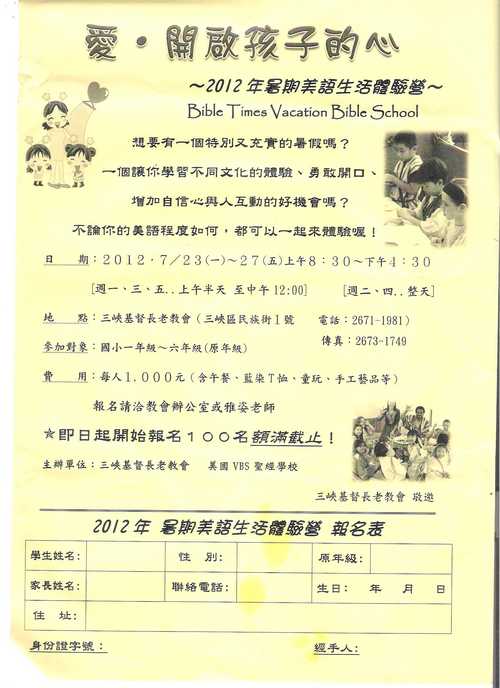 愛‧開啟孩子的心
～2012年暑期美語生活體驗營～
Bible Times Vacation Bible School
想要有一個特別又充實的暑假嗎？
一個讓你學習不同文化的體驗、勇敢開口、
增加自信心與人互動的好機會嗎？
不論你的美語程度如何，都可以一起來體驗喔！
日 期：2012‧7／23(一)～27(五)上午8：30～下午4：30
[週一、三、五..上午半天 至中午12:00] [週二、四..整天]
地 點：三峽基督長老教會（三峽區民族街1號 電話：2671-1981）
傳真：2673-1749
參加對象：國小一年級～六年級(原年級)
費 用：每人1,000元（含午餐、藍染T恤、童玩、手工藝品等）
報名請洽教會辦公室或雅姿老師
☆即日起開始報名100名額滿截止！
主辦單位：三峽基督長老教會 美國VBS聖經學校
三峽基督長老教會 敬邀
2012年 暑期美語生活體驗營 報名表
學生姓名： 性 別： 原年級：
家長姓名： 聯絡電話： 生日： 年 月 日
住 址：
身份證字號： 經手人：